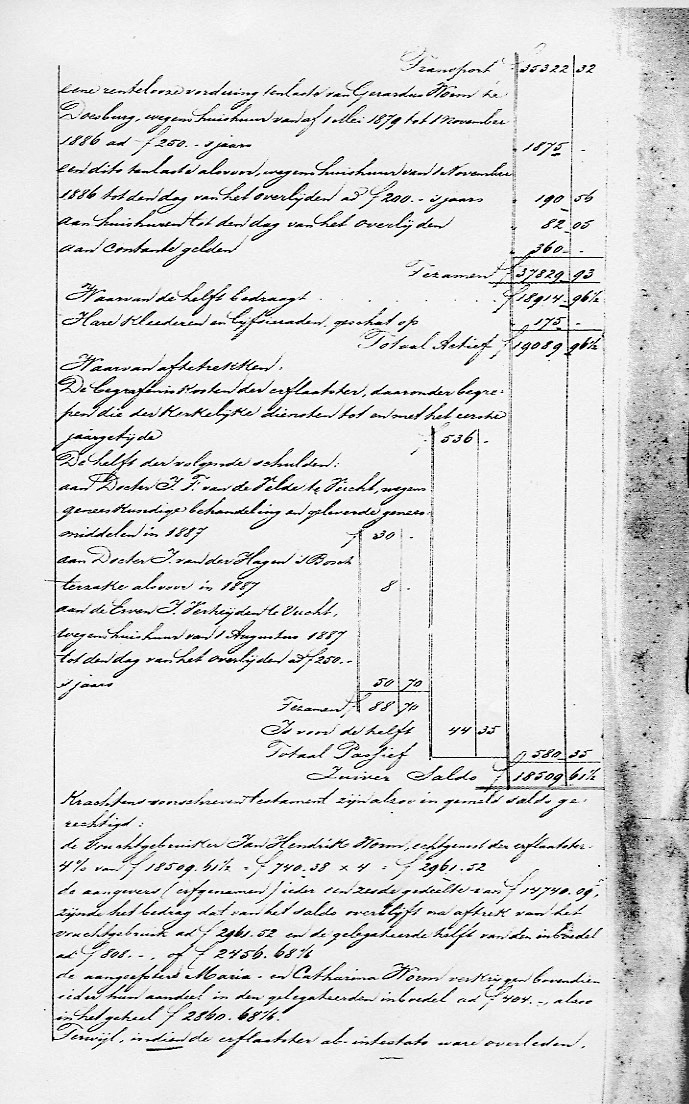 Transport f 35322 32
eene rentelooze vordering ten laste van Gerardus Worm te
Doesburg, wegens huishuur vanaf 1 Mei 1879 tot 1 November
1886 ad f 250.- 's jaars " 1875 -
een dito ten laste alsvoor, wegens huishuur van 1 November
1886 tot den dag van het overlijden ad f 200.- 's jaars " 190 56
aan huishuren tot den dag van het overlijden " 82 05
aan contante gelden " 360 -
Tezamen f 37829 93
Waarvan de helft bedraagt . . . . f 18914 96½
Hare kleederen en lijfsieraden, geschat op " 175 -
Totaal Actief f 19089 96½
Waarvan aftetrekken.
De begrafeniskosten der erflaatster, daaronder begre-
pen die der kerkelijke diensten tot en met het eerste
jaargetijde f 536 -
De helft der volgende schulden:
aan Docter J. F. van de Velde te Vucht, wegens
geneeskundige behandeling en geleverde genees-
middelen in 1887 f 30 -
aan Docter J. van der Hagen 's Bosch
terzake alsvoor in 1887 8 -
aan de Erven J. Verheijden te Vucht,
wegens huishuur van 1 Augustus 1887
tot den dag van het overlijden ad f 250.-
's jaars 50 70
Tezamen f 88 70
Is voor de helft 44 35
Totaal Passief " 580 35
Zuiver Saldo f 18509 61½
Krachtens voorschreven testament zijn alsoo in gemeld saldo ge-
rechtigd:
de Vruchtgebruiker Jan Hendrik Worm, echtgenoot der erflaatster
4% van f 18509.61½ = f 740.38 x 4 = f 2961.52
de aangevers (erfgenamen) ieder een zesde gedeelte van f 14740.09⁵
zijnde het bedrag dat van het saldo overblijft na aftrek van het
vruchtgebruik ad f 2961.52 en de gelegateerde helft van den inboedel
ad f 808.-, of f 2456.68¼
de aangeefsters Maria- en Catharina Worm verkrijgen bovendien
ieder hun aandeel in den gelegateerden inboedel ad f 404.-, alsoo
in het geheel f 2860.68¼.
Terwijl, indien de erflaatster ab-intestato ware overleden.